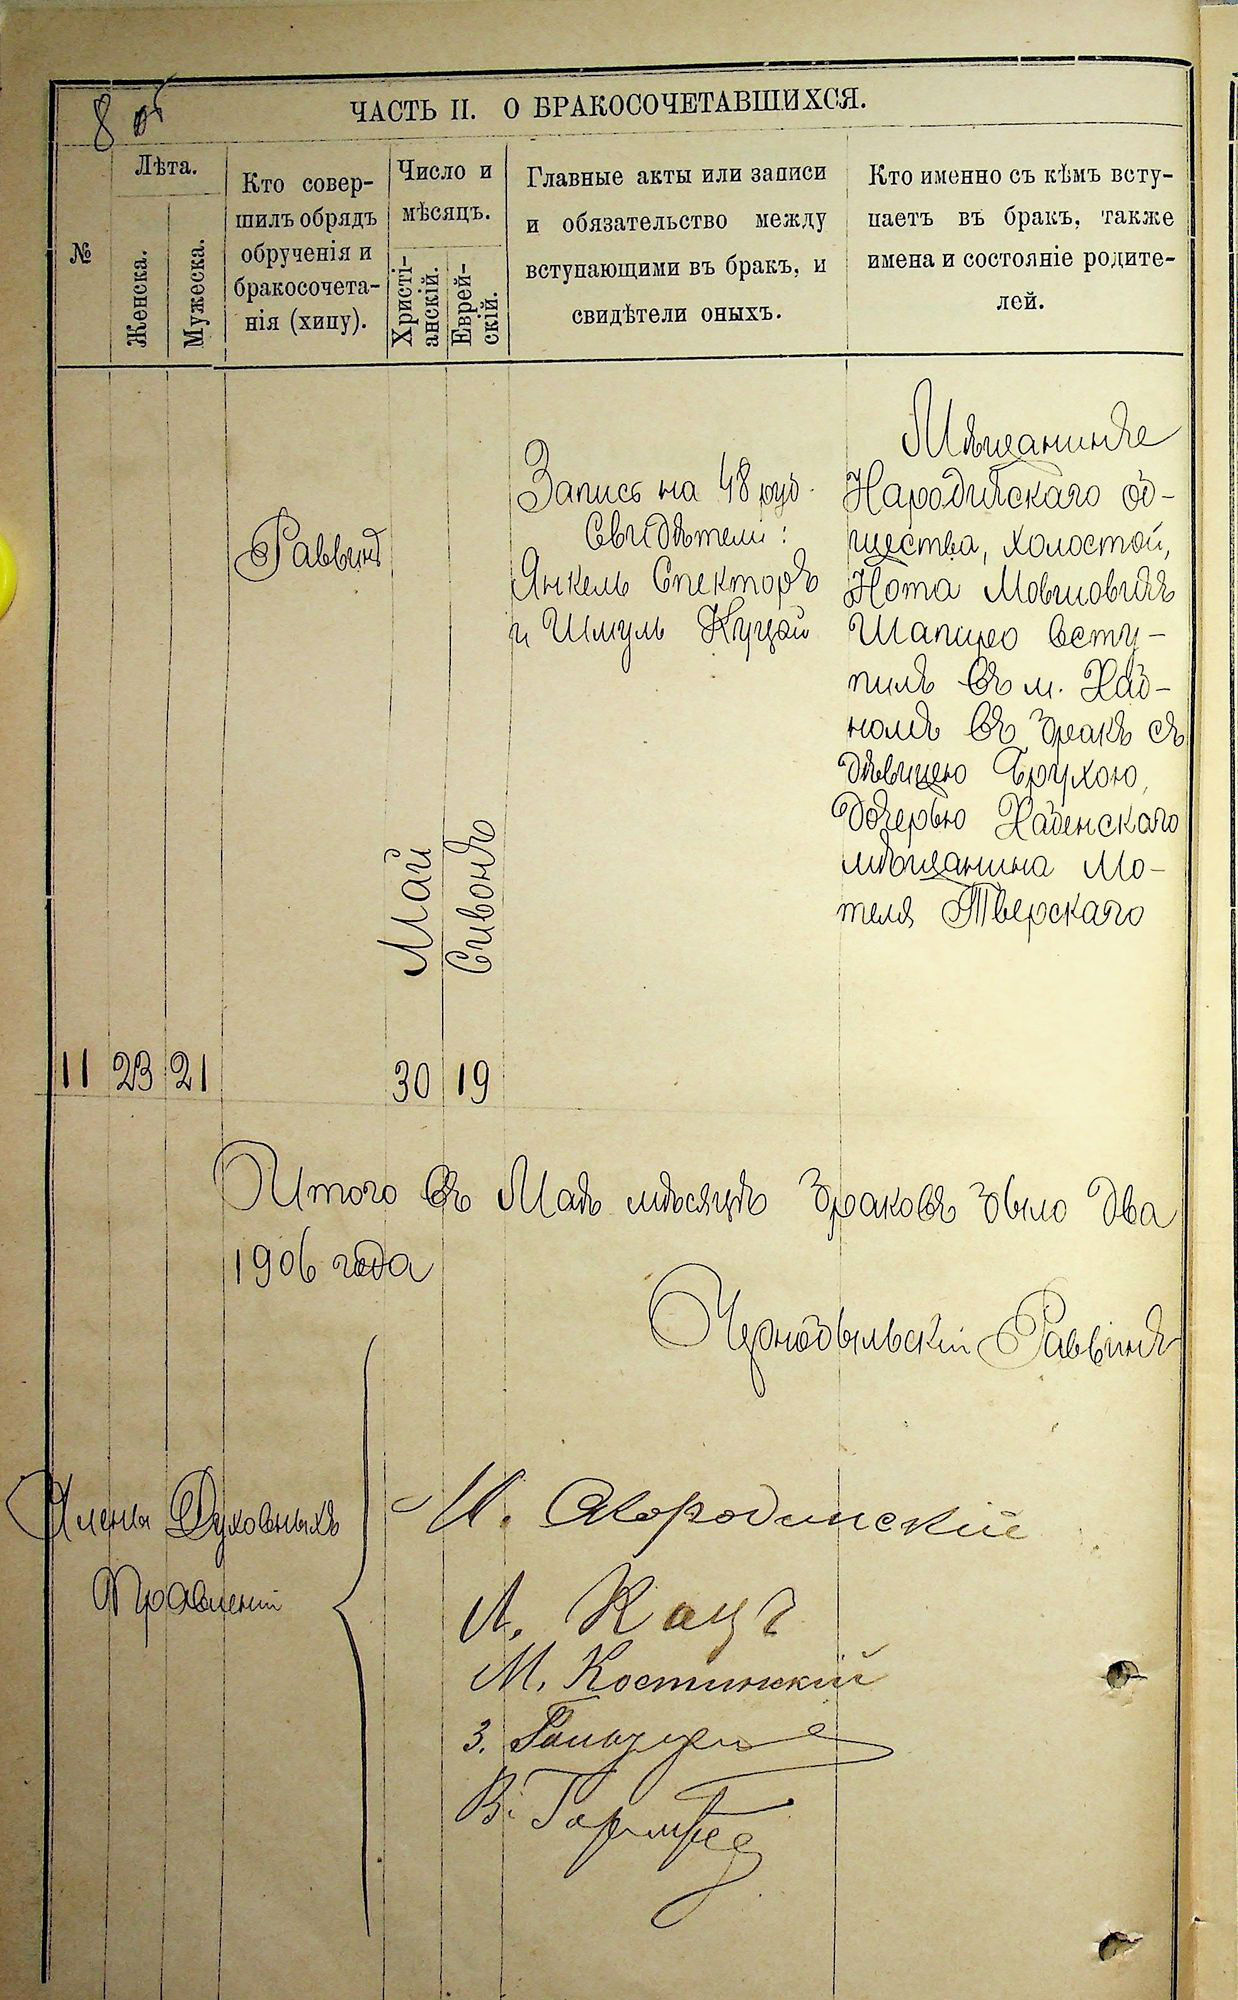 8 об
ЧАСТЬ II. О БРАКОСОЧЕТАВШИХСЯ.
№
Лѣта.
Женска.
Мужеска.
Кто совер-
шилъ обрядъ
обрученія и
бракосочета-
нія (хипу).
Число и
мѣсяцъ.
Христі-
анскій.
Еврей-
скій.
Главные акты или записи
и обязательство между
вступающими въ бракъ, и
свидѣтели оныхъ.
Кто именно съ кѣмъ всту-
паетъ въ бракъ, также
имена и состояніе родите-
лей.
11
23
21
Раввинъ
Май
30
Сивонъ
19
Запись на 48 руб.
Свидѣтели:
Янкель Спекторъ
и Шмуль Куцой
Мѣщанинъ
Народичскаго об-
щества, холостой,
Нота Мовшовичъ
Шапиро всту-
пилъ въ м. Хаб-
номъ въ бракъ съ
дѣвицею Брухою,
дочерью Хабенскаго
мѣщанина Мо-
теля Тверскаго
Итого въ Маѣ мѣсяцѣ браковъ было два
1906 года
Чернобыльскій Раввинъ
Члены Духовныхъ
Правленій
М. Костинскій